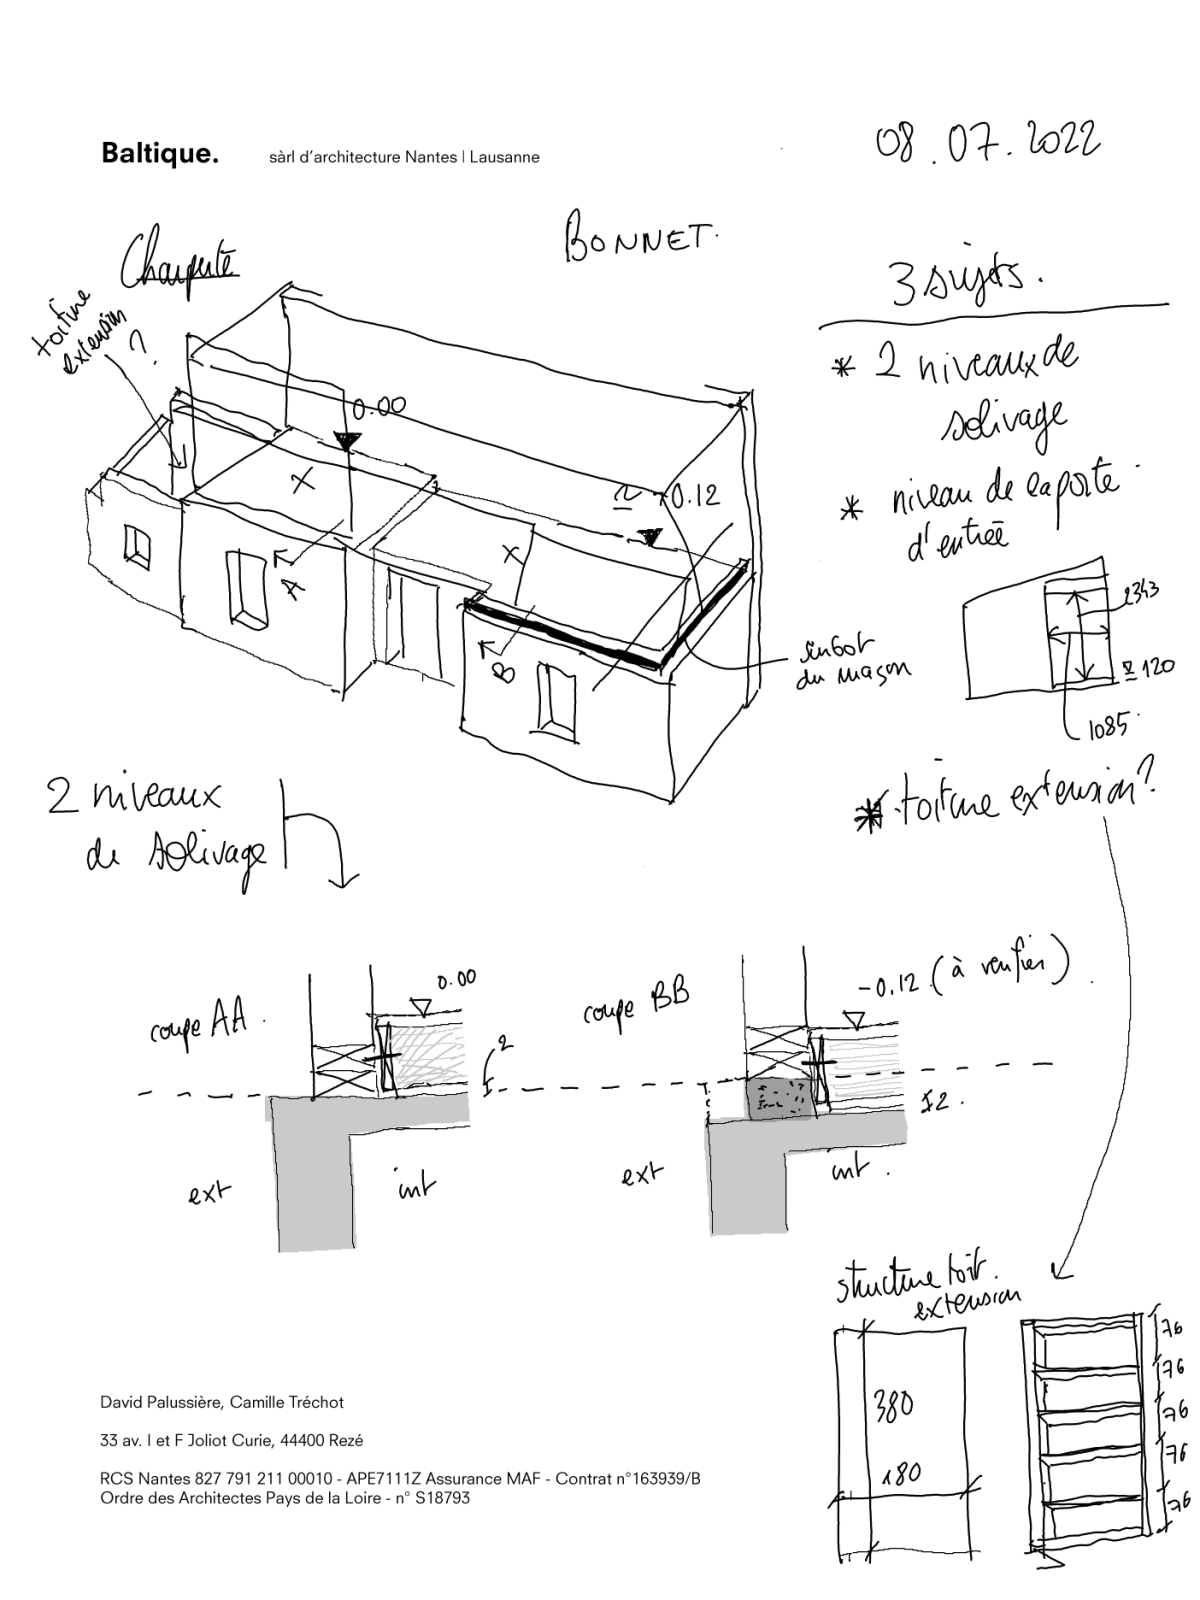 Baltique.
sàrl d'architecture Nantes | Lausanne
08.07.2022
BONNET.
Charpente
toiture
extension
?
0.00
X
A
≃ -0.12
X
B
rabot
du maçon
3 sujets.
* 2 niveaux de
solivage
* niveau de la porte
d'entrée
2343
120
1085
* toiture extension?
2 niveaux
de solivage
coupe AA.
0.00
2
ext
int
coupe BB
-0.12 (à verifier)
2.
ext
int.
structure toit.
extension
380
180
76
76
76
76
76
David Palussière, Camille Tréchot
33 av. I et F Joliot Curie, 44400 Rezé
RCS Nantes 827 791 211 00010 - APE7111Z Assurance MAF - Contrat n°163939/B
Ordre des Architectes Pays de la Loire - n° S18793